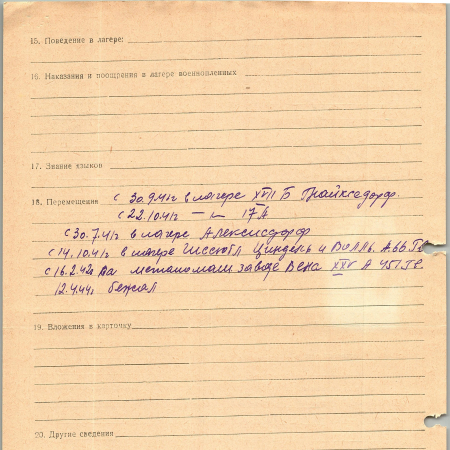 15. Поведение в лагере:
16. Наказания и поощрения в лагере военнопленных
17. Знание языков
18. Перемещения с 30.9.41г в лагере XVII Б Грайксадорф.
с 22.10.41г — 17 А
с 30.7.41г в лагере Алексисдорф
с 14.10.41г в лагере Циндель и
с 16.2.42г на заводе Вена XXV А 451.Гв.
12.4.44г бежал
19. Вложения в карточку
20. Другие сведения